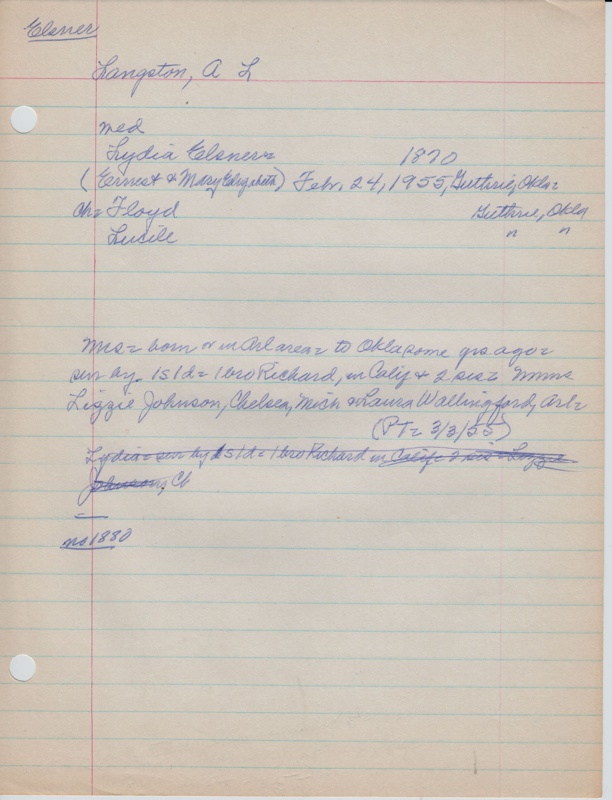 Elsner
Langston, A L
med
Lydia Elsner= 1870
(Ernest & Mary Elizabeth) Febr. 24, 1955, Guthrie, Okla=
ch= Floyd Guthrie, Okla
Lucile " "
Mrs= born or in Arl area= to Okla some yrs ago=
sur by. 1s 1d= 1 bro Richard, in Calif & 2 sis= Mmes
Lizzie Johnson, Chelsea, Mich & Laura Wallingford, Arl=
(PT= 3/3/55)
Lydia= sur by 1s 1d= 1 bro Richard in Calif= 2 sis= Lizzie
Johnson, Ch
no 1880